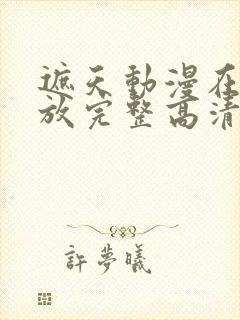 遮天動漫在
放完整高清
許夢曦